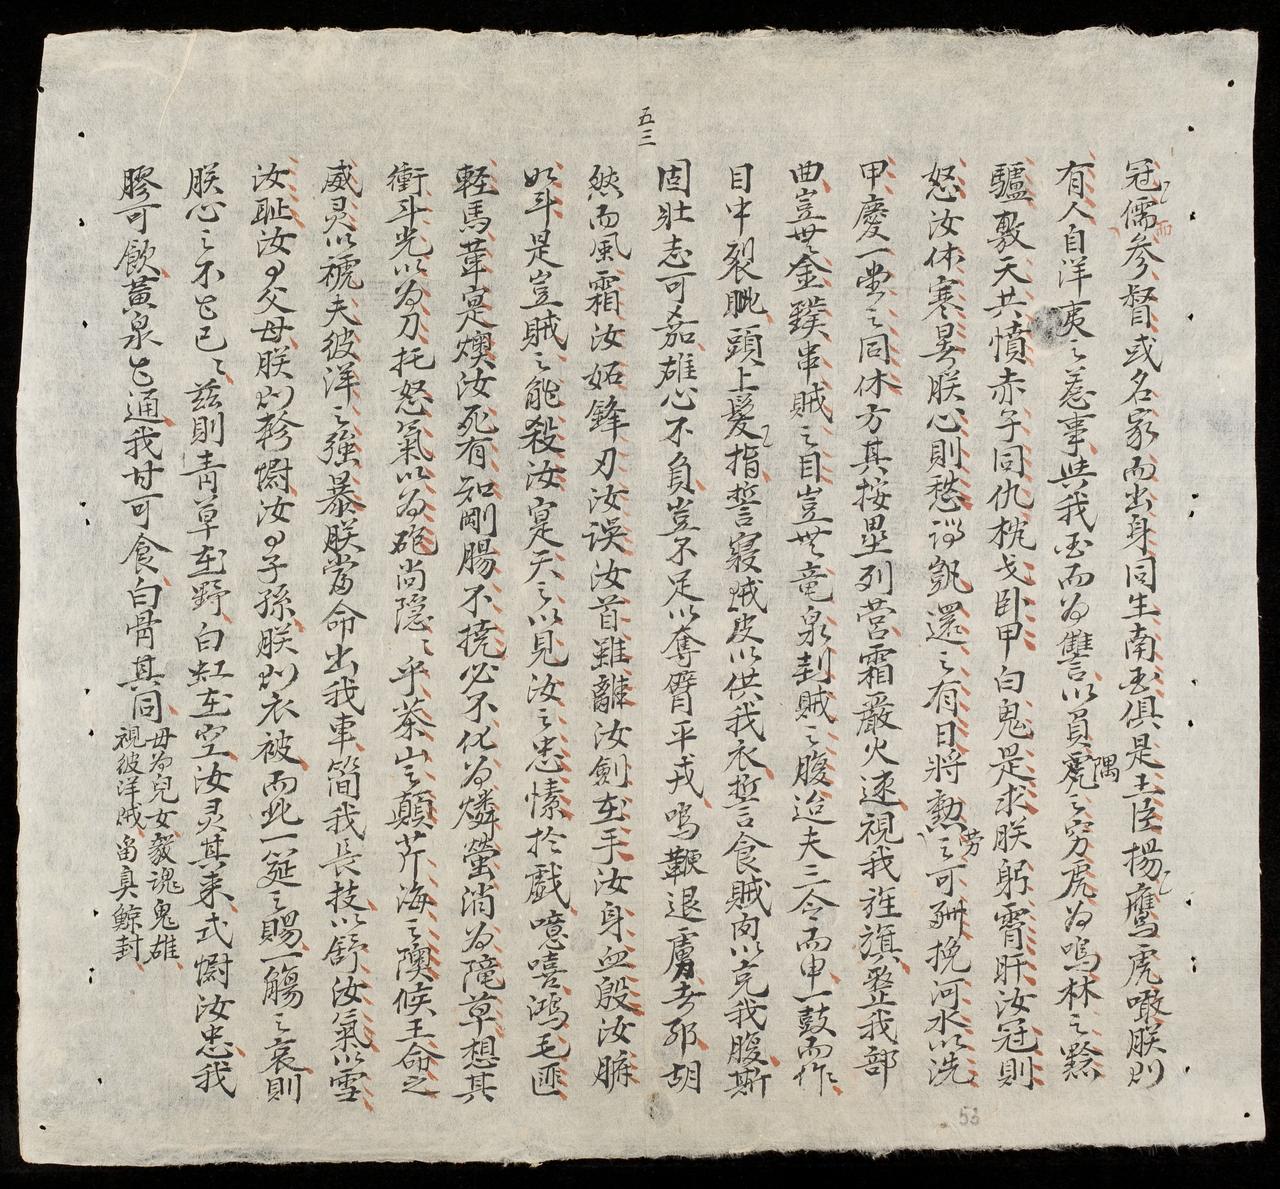 五三
冠儒參督或名家而出身同生南国俱是王臣揚鷹虎噉朕則
而
有人自洋夷之惹事與我国而为讐以負虎之穷虎为鳴林之黥
隅
驢敷天共憤赤子同仇枕戈卧甲白鬼是求朕躬霄肝汝冠則
怒汝休寒暑朕心則愁凱還之有日將勲之可酬挽河水以洗
劳
甲慶一堂之同休方其按壘列营霜嚴火逐視我旌旗整我部
曲豈無金鏷串賊之目豈無竜泉刲賊之腹迨夫三令而申一鼓而作
目中裂眦頭上髮指誓寢贼皮以供我衣誓食賊肉以充我腹斯
固壯志可嘉雄心不負豈不足以奪臂平戎鳴鞭退虜去邪胡
然而風霜汝妬鋒刃汝误汝首雖離汝劍在手汝身血殷汝
如斗是豈贼之能殺汝寔天之以見汝之忠愫於戲噫嘻鴻毛匪
軽馬革寔燠汝死有知剛腸不撓必不化为燐螢消为草想其
衝斗光以为刀托怒氣以为砲尚隐〻乎茶山之顛芹海之隩候王命之
威灵以褫夫彼洋之強暴朕當命出我車簡我長技以舒汝氣以雪
汝耻汝之父母朕則軫慰汝之子孫朕則衣被而此一筵之賜一觴之哀則
朕心之不已〻兹則青草在野白虹在空汝灵其来式慰汝忠我
膠可飲黃泉通我甘可食白骨其同
毋为兒女毅魂鬼雄
視彼洋贼畄真鯨封
53